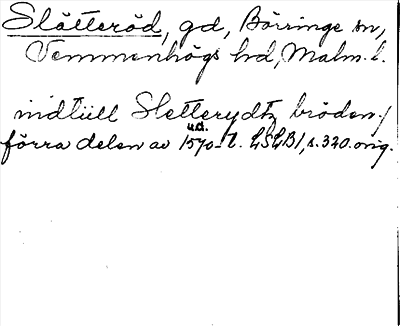 Slätteröd, gd, Börringe sn,
Vemmenhögs hd, Malm. l.
indtiill Sletterydtz bröden /
förra delen av 1570-t. LSGB1, s. 320. orig.
u.d.